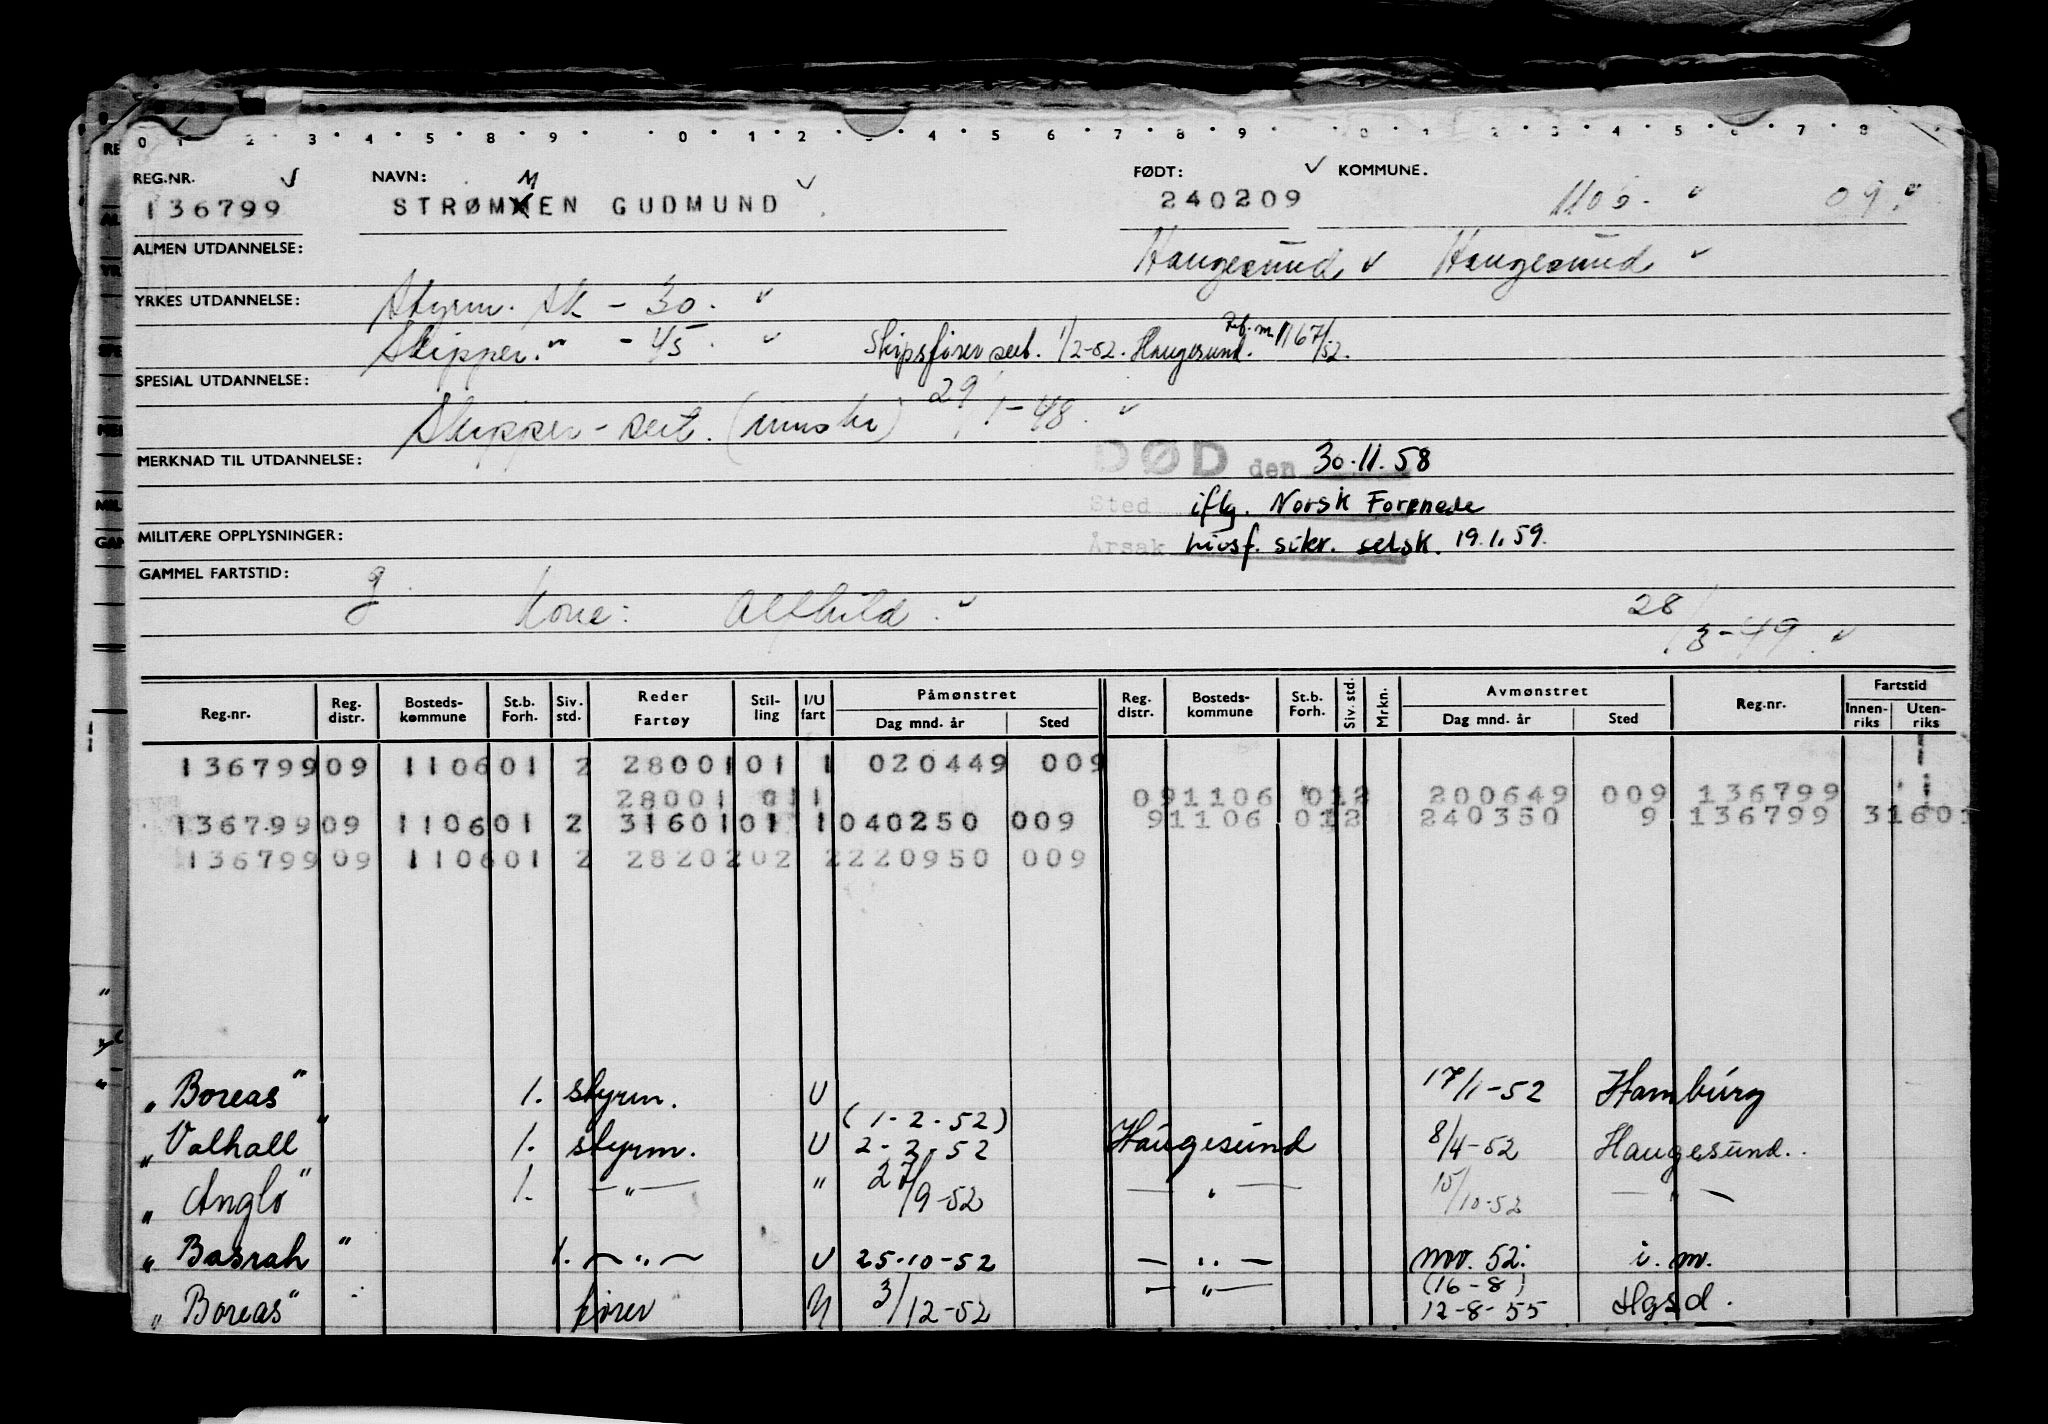 REG.NR. NAVN: FØDT: KOMMUNE.
136799 STRØMMEN GUDMUND 240209 1106. 09.
ALMEN UTDANNELSE: Haugesund Haugesund
YRKES UTDANNELSE: Styrm. sk - 30.
Skipper. " - 45. Skipsfører sert. 1/2-52. Haugesund. 1167/52.
SPESIAL UTDANNELSE:
Skipper - sert. 29/1-48.
MERKNAD TIL UTDANNELSE: DØD den 30.11.58
Sted iflg. Norsk Forenede
MILITÆRE OPPLYSNINGER: Årsak Livsf. sikr. selsk. 19.1.59.
GAMMEL FARTSTID: g.
Kone: Alfhild. 28/3-49.
Reg.nr. Reg. distr. Bosteds-kommune St.b. Forh. Siv. std. Reder Fartøy Stil-ling I/U fart Påmønstret Dag mnd. år Sted Reg. distr. Bosteds-kommune St.b. Forh. Siv. std. Mrkn. Avmønstret Dag mnd. år Sted Reg.nr. Fartstid Innen-riks Uten-riks
136799 09 1106 01 2 28001 01 1 020449 009
28001 01 1 09 1106 01 2 200649 009 136799 1
136799 09 1106 01 2 31601 01 1 040250 009 9 1106 01 2 240350 9 136799 31601
136799 09 1106 01 2 28202 02 2 220950 009
"Boreas" 1. styrm. U 17/1-52 Hamburg
(1-2-52)
"Valhall" 1. styrm. U 2-2-52 Haugesund 8/4-52 Haugesund.
"Anglo" 1. — " — " 27/9-52 — " — 15/10-52 — " —
"Basrah" 1. — " — U 25-10-52 — " — nov. 52. i. m.
(16-8)
"Boreas" fører U 3/12-52 — " — 12-8-55 Hgsd.